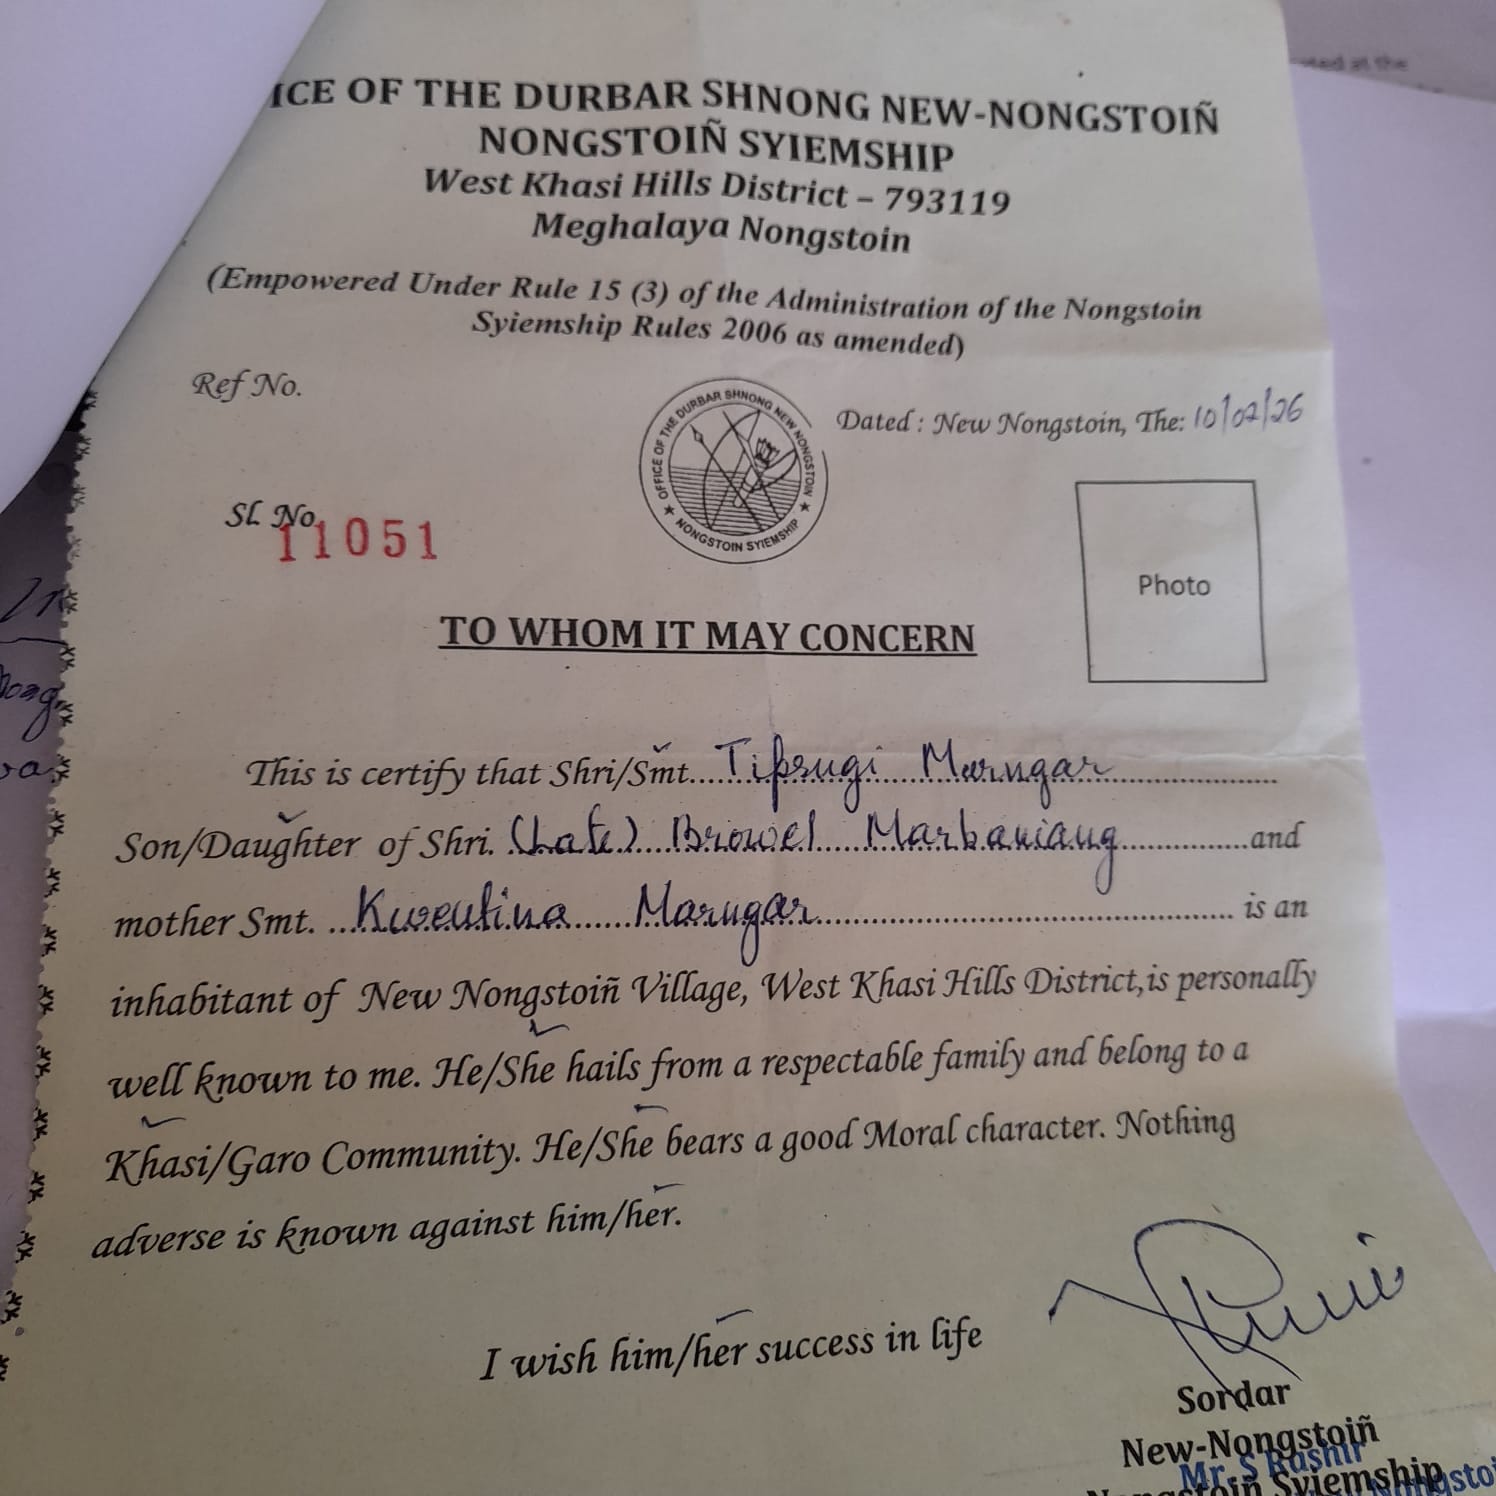 ICE OF THE DURBAR SHNONG NEW-NONGSTOIÑ
NONGSTOIÑ SYIEMSHIP
West Khasi Hills District – 793119
Meghalaya Nongstoin
(Empowered Under Rule 15 (3) of the Administration of the Nongstoin
Syiemship Rules 2006 as amended)
Ref No.
OFFICE OF THE DURBAR SHNONG NEW NONGSTOIN
★ NONGSTOIN SYIEMSHIP ★
Dated : New Nongstoin, The: 10/02/26
Sl. No. 11051
Photo
TO WHOM IT MAY CONCERN
This is certify that Shri/Smt.... Tiprugi Marngar
Son/Daughter of Shri. (Late) Browel Marbaniang and
mother Smt. Kwentina Marngar is an
inhabitant of New Nongstoiñ Village, West Khasi Hills District, is personally
well known to me. He/She hails from a respectable family and belong to a
Khasi/Garo Community. He/She bears a good Moral character. Nothing
adverse is known against him/her.
I wish him/her success in life
Sordar
New-Nongstoiñ
Mr. S Rashir
Nongstoiñ Syiemship